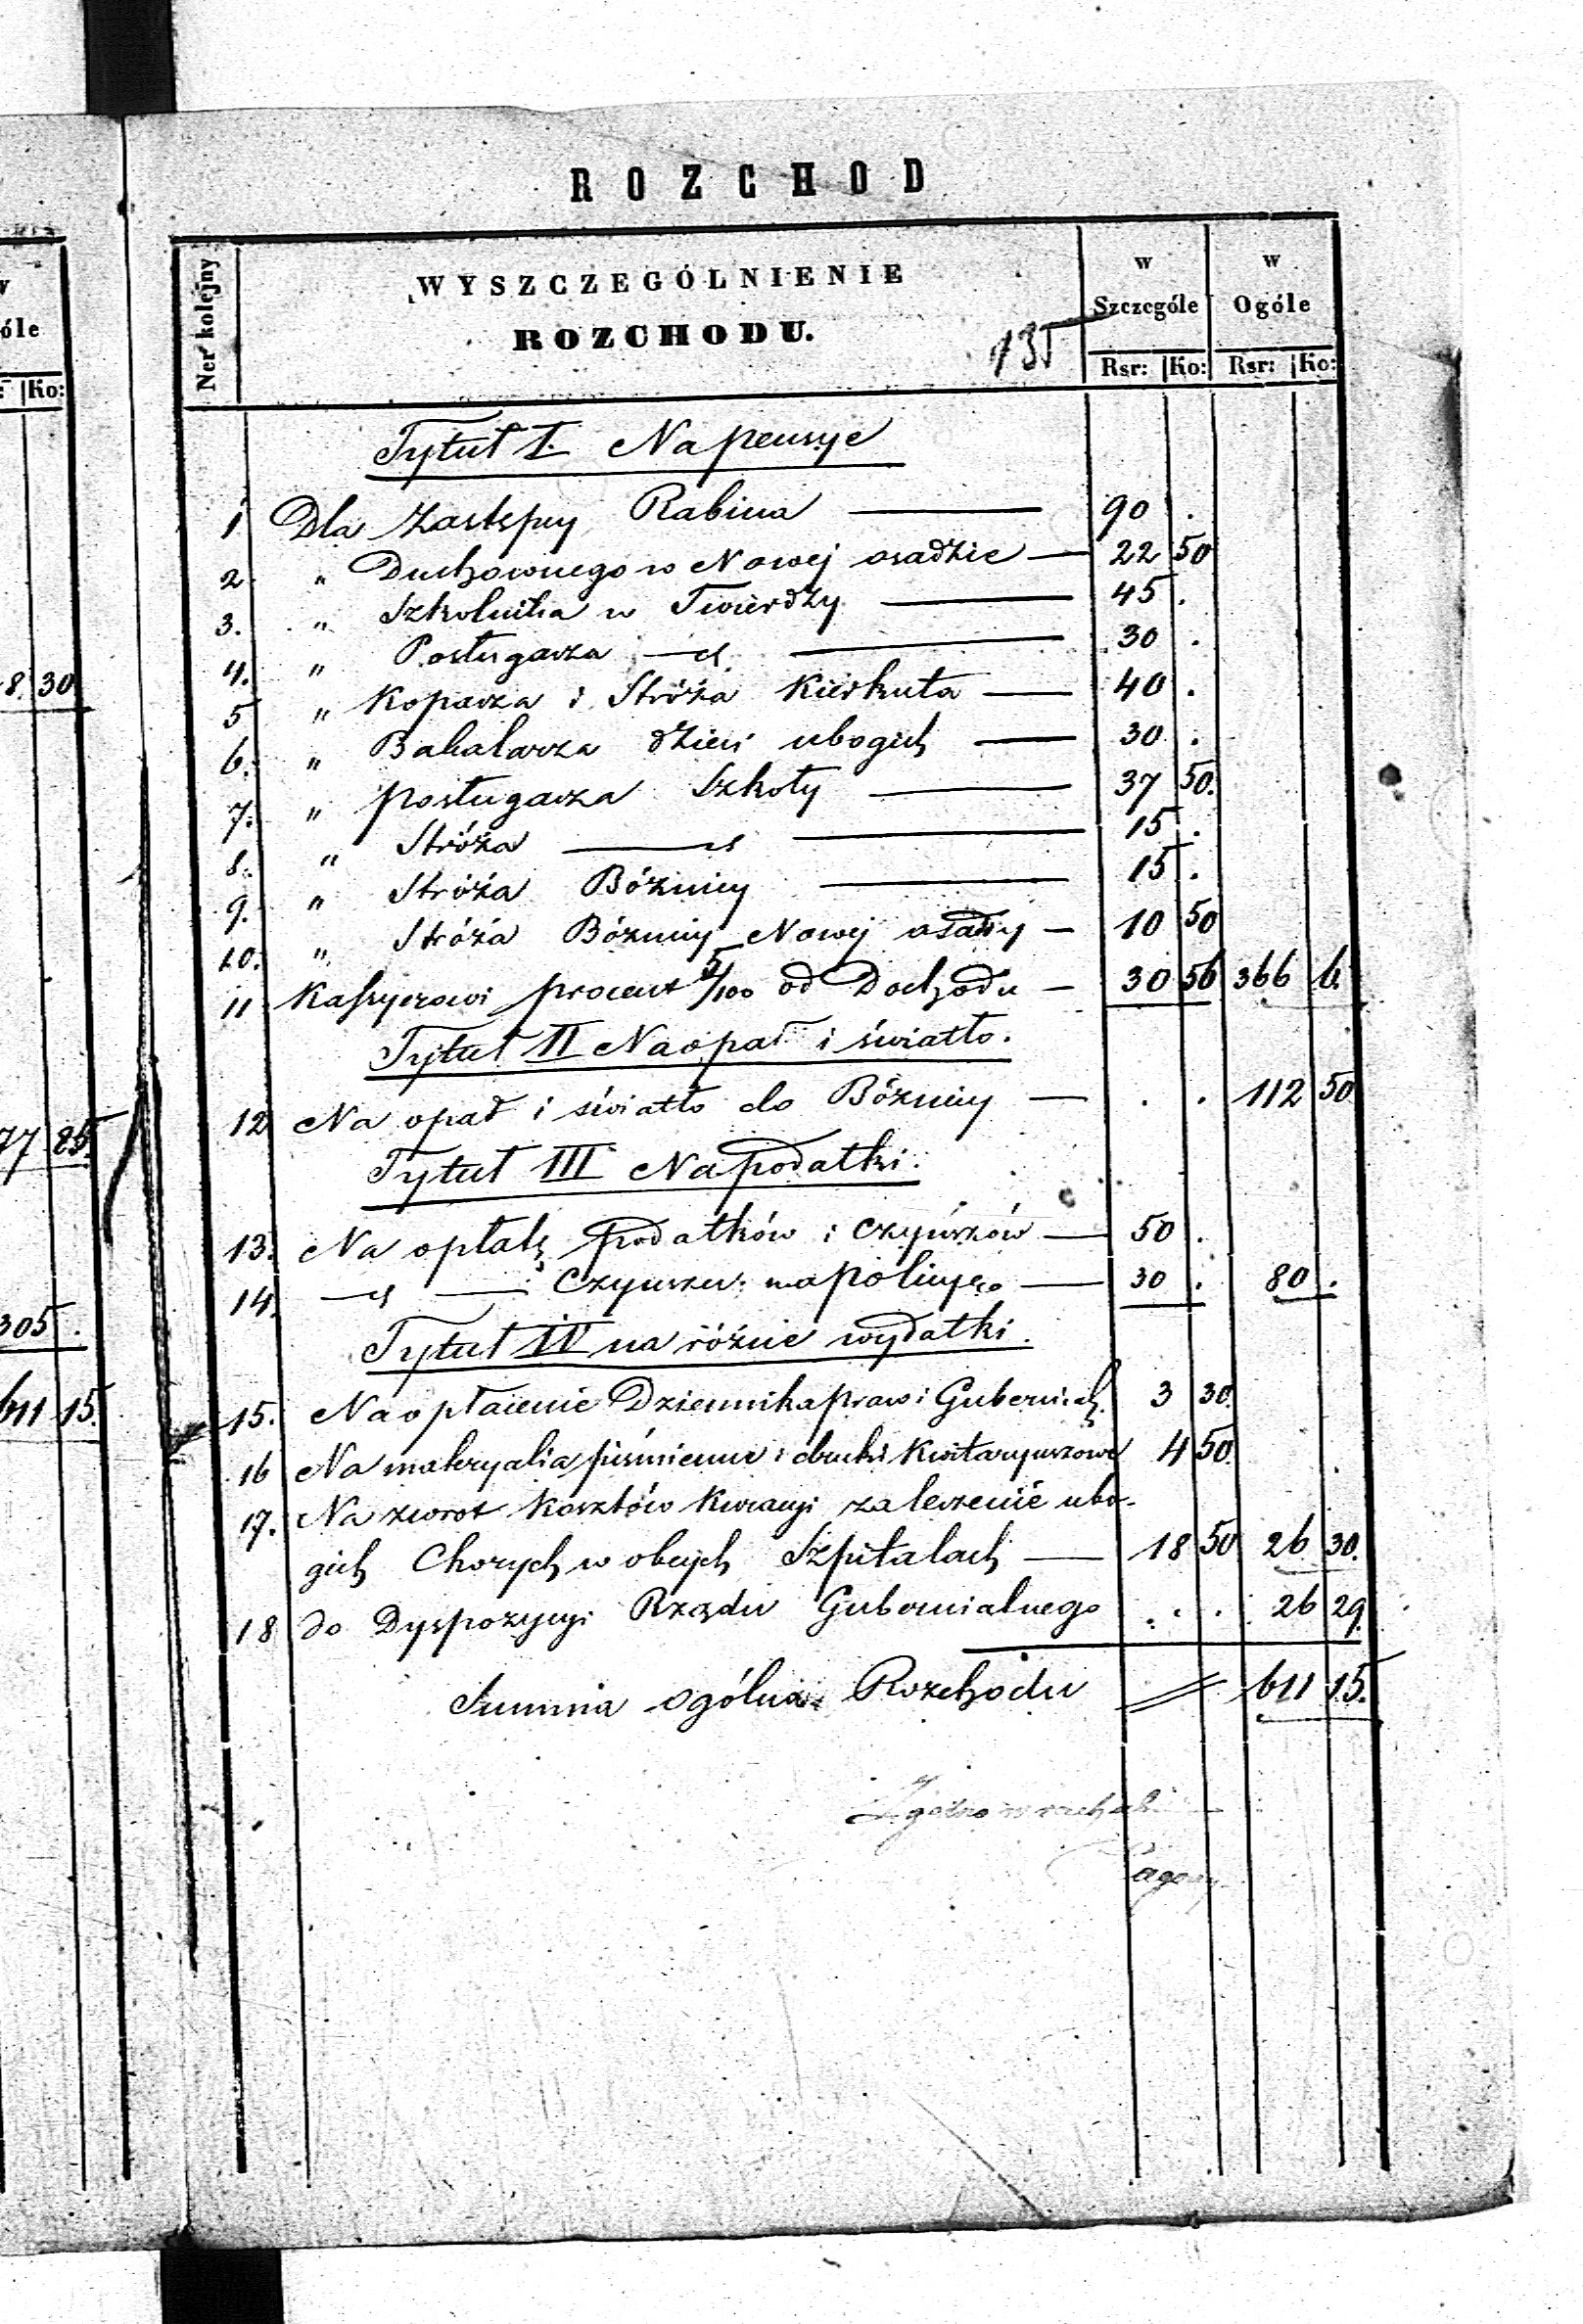 ROZCHOD
Ner kolejny
WYSZCZEGÓLNIENIE
ROZCHODU.
135
w Szczególe
w Ogóle
Rsr: Ko: Rsr: Ko:
óle
Ko:
Tytuł I. Na pensye
1 Dla Zastępcy Rabina — 90 .
2 " Duchownego w Nowej osadzie — 22 50
3. " Szkolnika w Twierdzy — 45 .
4. " Posługacza — 30 .
5 " Kopacza i Stróża Kierkuta — 40 .
6. " Bakałarza dzieci ubogich — 30 .
7. " posługacza Szkoły — 37 50.
8. " Stróża — 15 .
9. " Stróża Bóżnicy — 15 .
10. " Stróża Bóżnicy Nowej osady — 10 50
11 Kassyerowi procent 5/100 od Dochodu — 30 56 366 6.
Tytuł II Na opał i światło.
12 Na opał i światło do Bóżnicy — . . 112 50
Tytuł III Na podatki.
13. Na opłatę podatków i czynszów — 50 .
14. — Czynszu — 30 . 80 .
Tytuł IV na różne wydatki.
15. Na opłacenie Dziennika praw i Gubernial. 3 30.
16 Na materyalia piśmienne i druki Kwitaryuszowe 4 50.
17. Na zwrot kosztów Kuracyi za leczenie ubo-
gich Chorych w obcych Szpitalach — 18 50 26 30.
18 do Dyspozycyi Rządu Gubernialnego . . . 26 29.
Summa ogólna Rozchodu 611 15.
8. 30
77 85.
305 .
611 15.